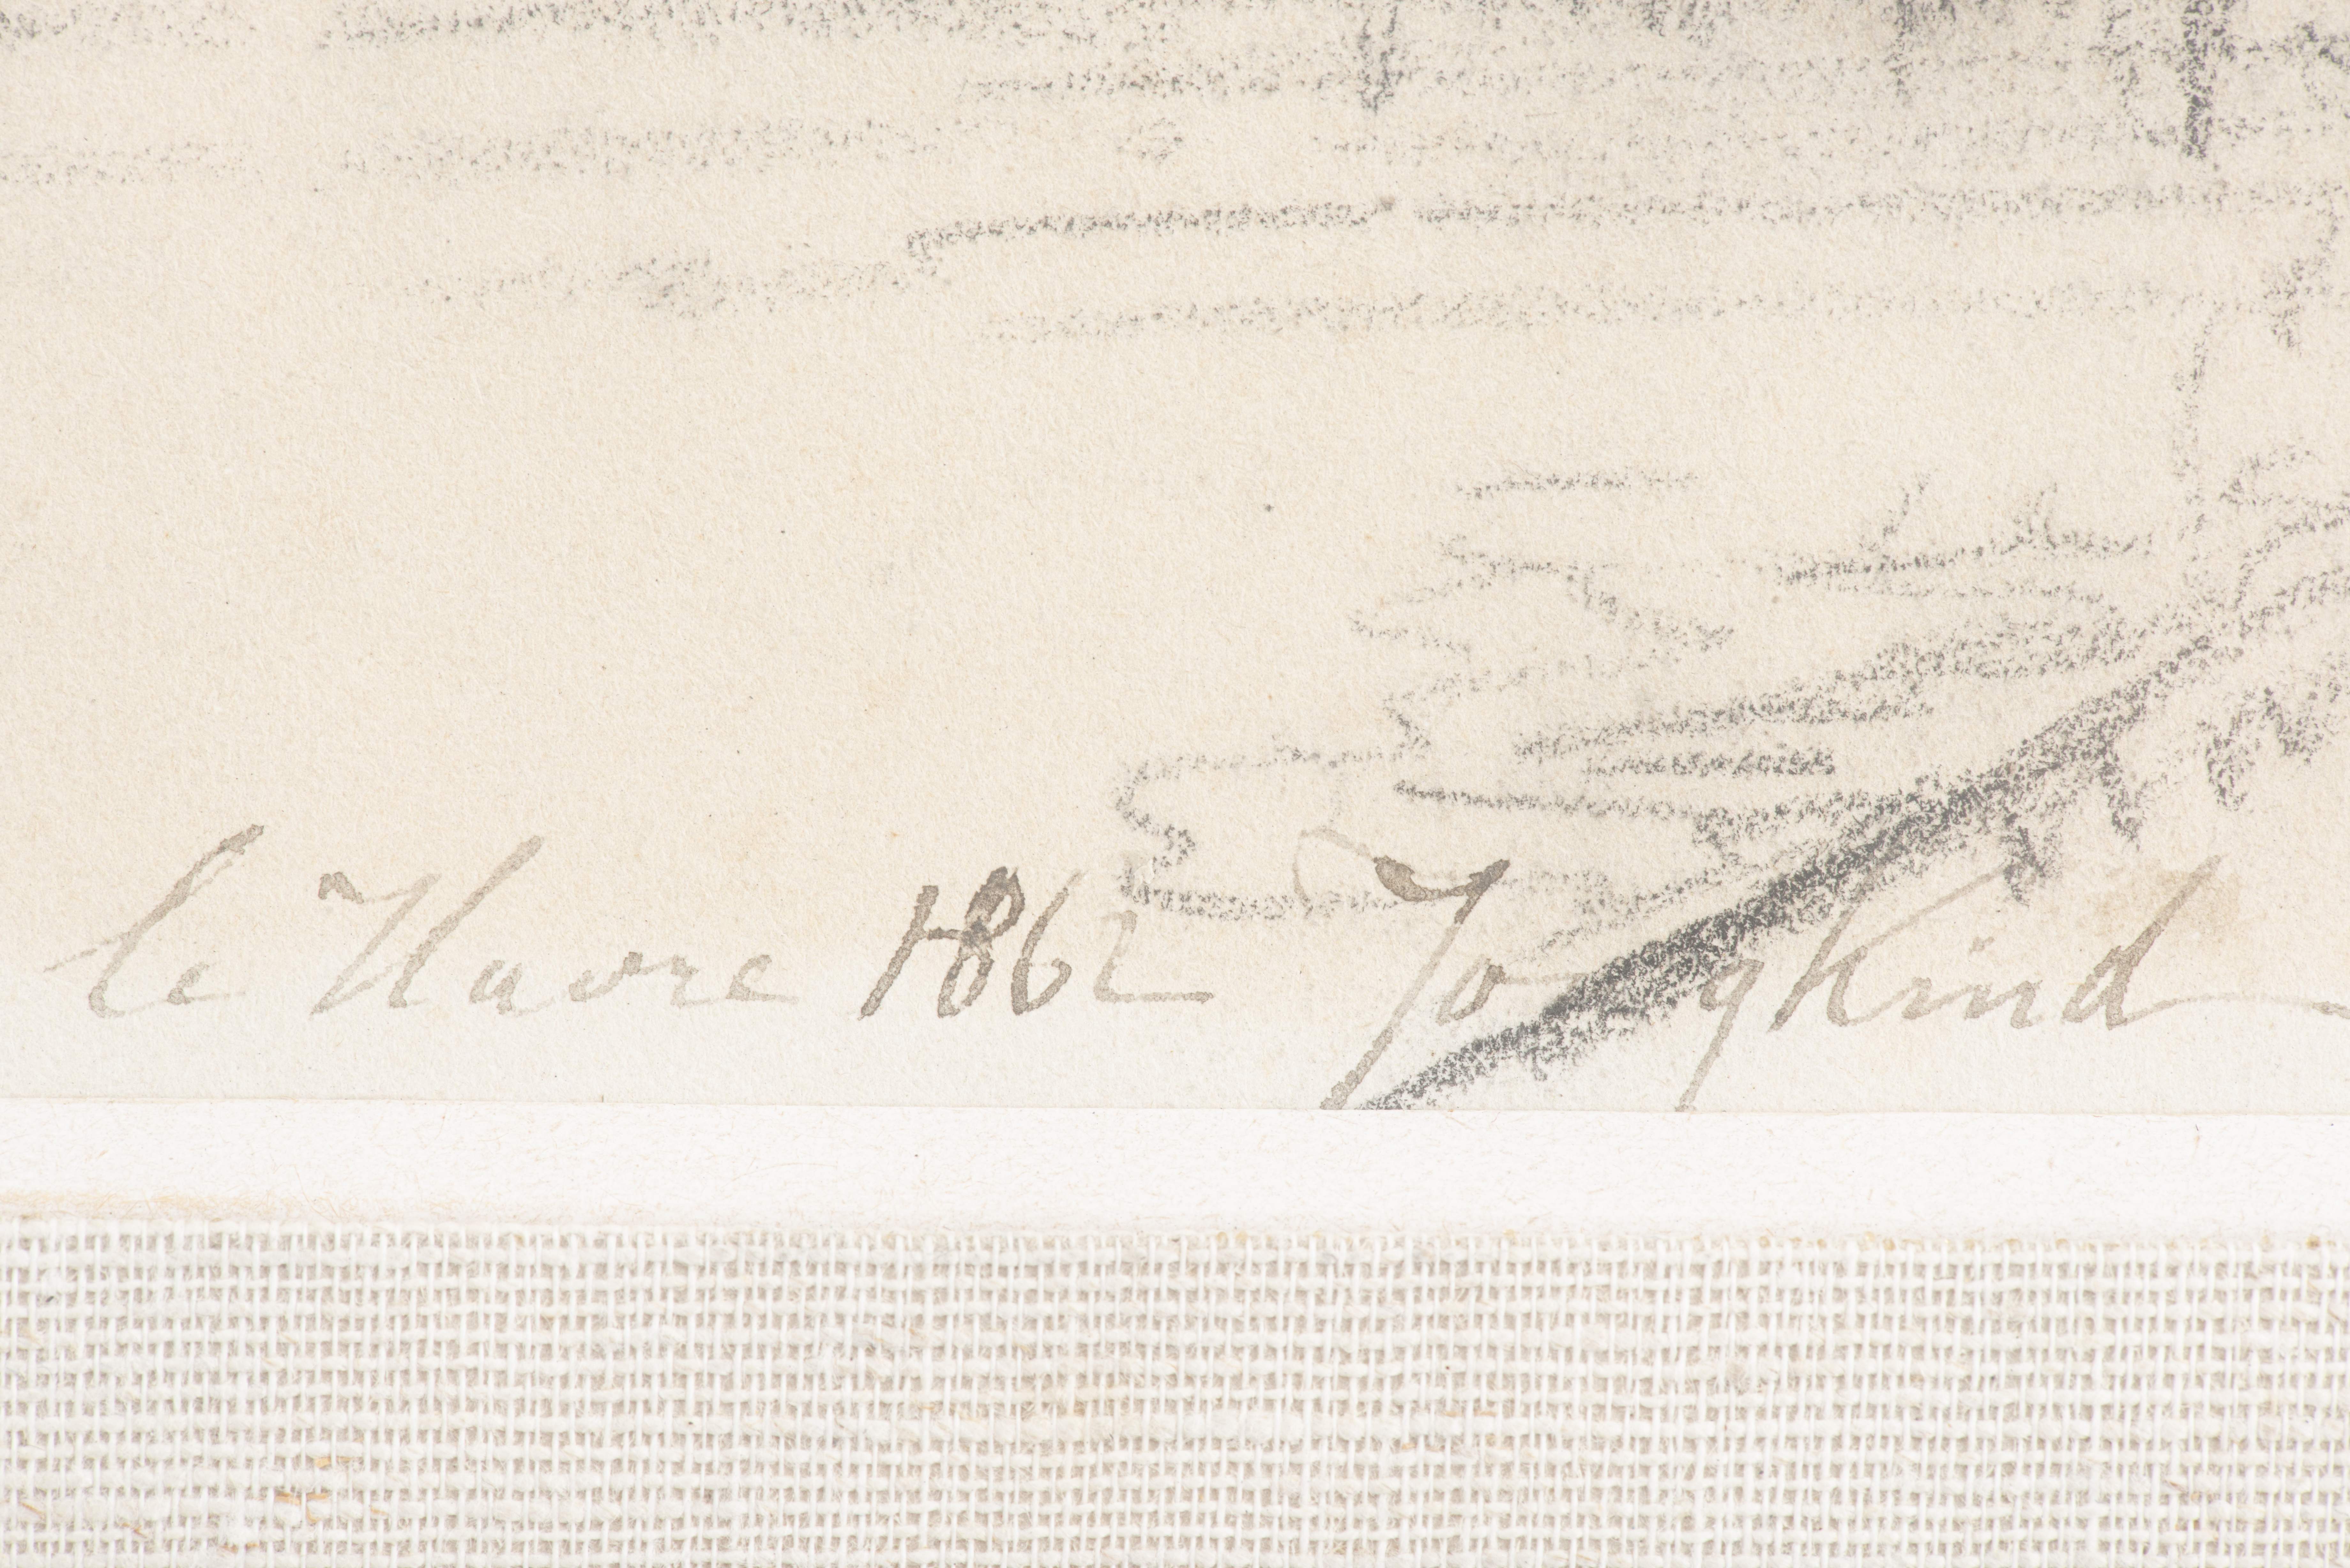 le Havre 1862 Jongkind